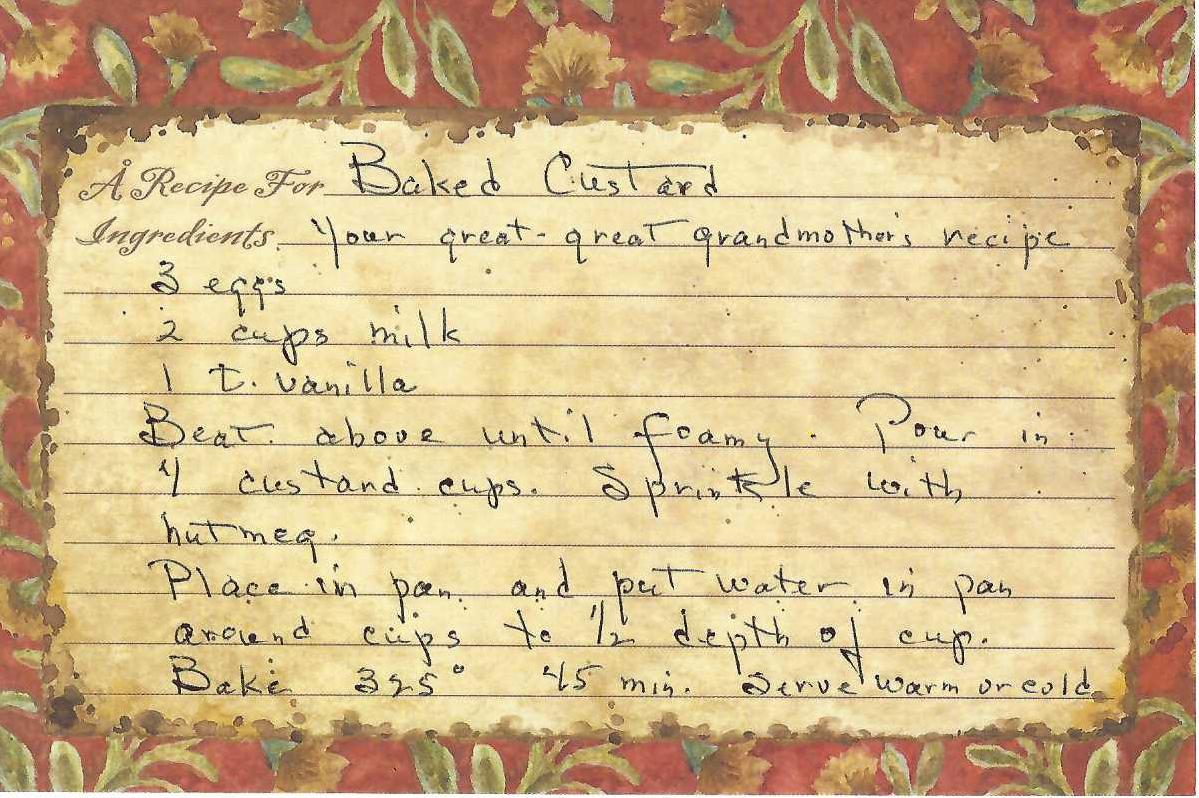 A Recipe For Baked Custard
Ingredients Your great-great grandmother's recipe
3 eggs
2 cups milk
1 t. vanilla
Beat above until foamy. Pour in
4 custard cups. Sprinkle with
nutmeg.
Place in pan and put water in pan
around cups to 1/2 depth of cup.
Bake 325° 45 min. Serve warm or cold.